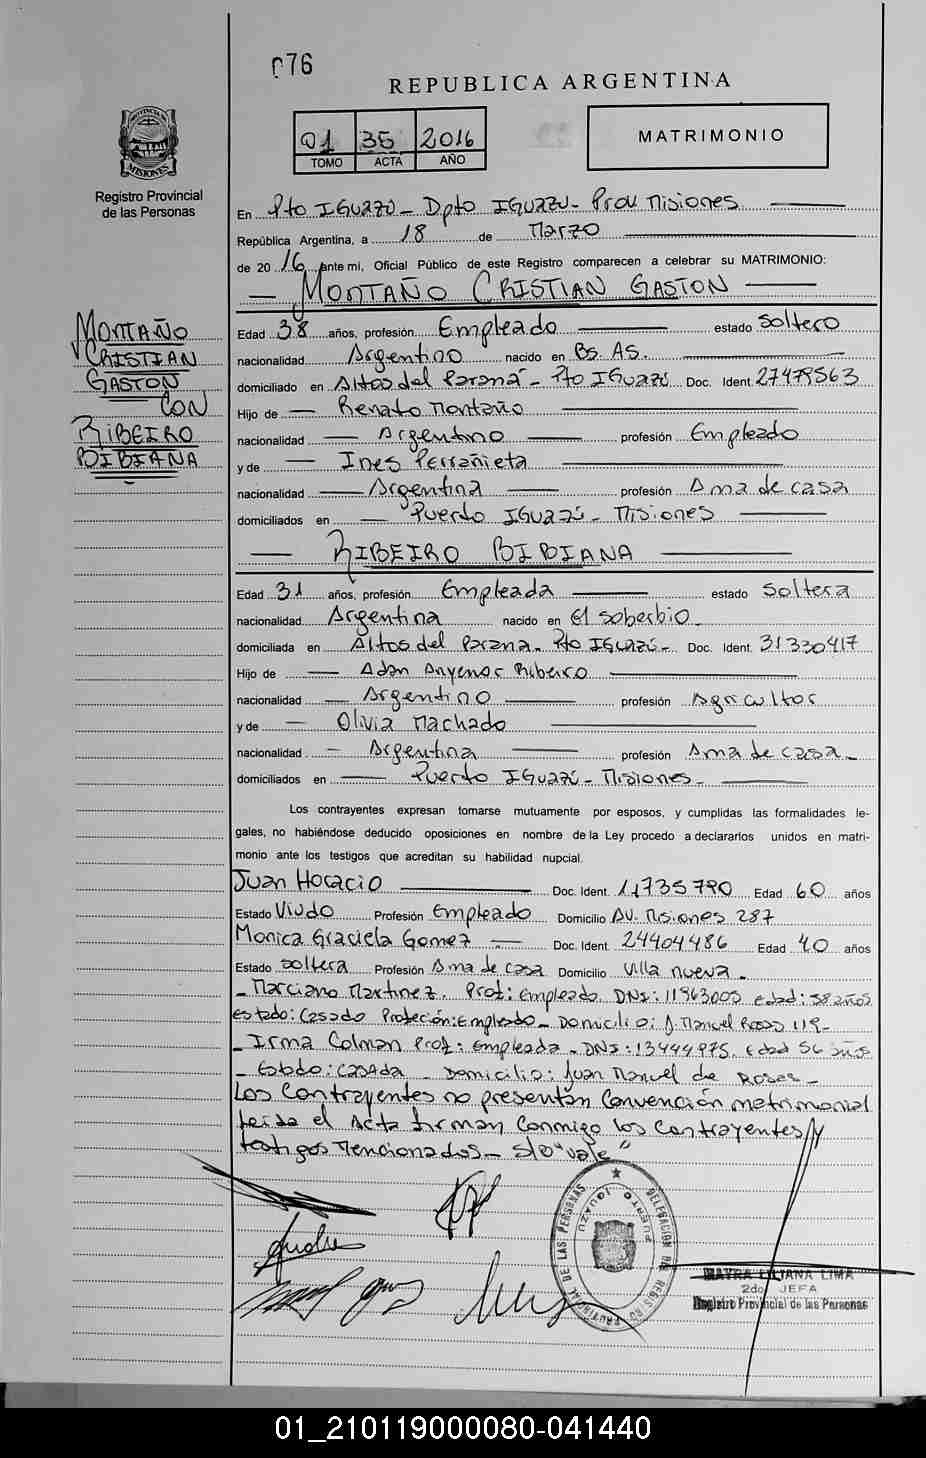 076
REPUBLICA ARGENTINA
01 35 2016
TOMO ACTA AÑO
MATRIMONIO
PROVINCIA DE MISIONES
Registro Provincial
de las Personas
En Pto IGUAZÚ - Dpto IGUAZU - Prov Misiones
República Argentina, a 18 de Marzo
de 20 16 ante mi, Oficial Público de este Registro comparecen a celebrar su MATRIMONIO:
MONTAÑO CRISTIAN GASTON
MONTAÑO
CRISTIAN
GASTON
CON
RIBEIRO
BIBIANA
Edad 38 años, profesión Empleado estado Soltero
nacionalidad Argentino nacido en Bs. AS.
domiciliado en Altos del Paraná - Pto IGUAZÚ Doc. Ident. 27479563
Hijo de Renato Montaño
nacionalidad Argentino profesión Empleado
y de Ines
nacionalidad Argentina profesión Ama de casa
domiciliados en Puerto IGUAZÚ - Misiones
RIBEIRO BIBIANA
Edad 31 años, profesión Empleada estado Soltera
nacionalidad Argentina nacido en El soberbio
domiciliada en Altos del Parana - Pto IGUAZÚ - Doc. Ident. 31330417
Hijo de Adan Ribeiro
nacionalidad Argentino profesión Agricultor
y de Olivia Machado
nacionalidad Argentina profesión Ama de casa
domiciliados en Puerto IGUAZÚ - Misiones -
Los contrayentes expresan tomarse mutuamente por esposos, y cumplidas las formalidades le-
gales, no habiéndose deducido oposiciones en nombre de la Ley procedo a declararlos unidos en matri-
monio ante los testigos que acreditan su habilidad nupcial.
Juan Horacio Doc. Ident. 11735790 Edad 60 años
Estado Viudo Profesión Empleado Domicilio AV. Misiones 287
Monica Graciela Gomez Doc. Ident. 24404486 Edad 40 años
Estado Soltera Profesión Ama de casa Domicilio Villa nueva -
- Marciano Martinez. Prof: Empleado. DNI: 11963005 edad: 58 años
estado: Casado Profeción: Empleado - Domicilio: J. Manuel Rosas 119 -
- Irma Colman Prof: empleada - DNI: 13444975. Edad 56 años
- Estado: CASADA - Domicilio: Juan Manuel de Rosas -
Los Contrayentes no presentan Convención matrimonial
leida el Acta firman conmigo los contrayentes y
testigos Mencionados - S/O "vale"
DELEGACION DEL REGISTRO PROVINCIAL DE LAS PERSONAS
PUERTO IGUAZU
MAYRA LILIANA LIMA
2do JEFA
Registro Provincial de las Personas
01_210119000080-041440